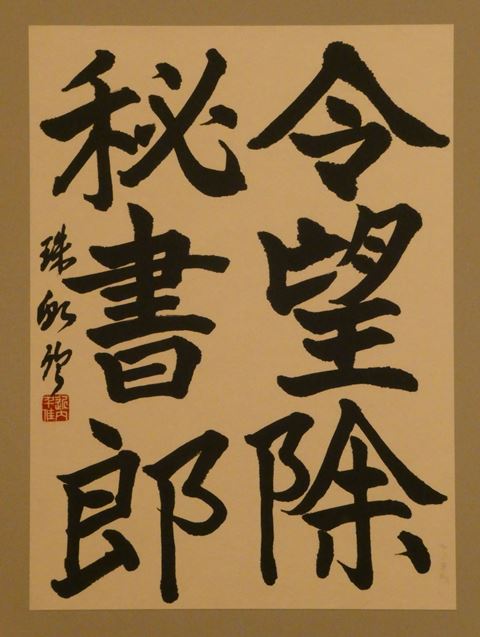 令望除
秘書郎
珠